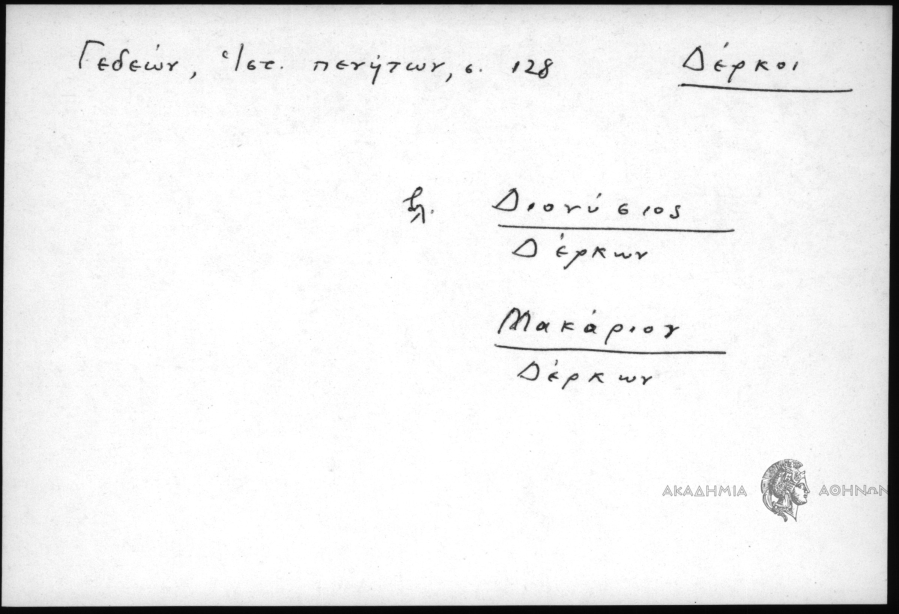 Γεδεών, Ἱστ. πενήτων, σ. 128
Δέρκοι
βλ. Διονύσιος
Δέρκων
Μακάριον
Δέρκων
ΑΚΑΔΗΜΙΑ ΑΘΗΝΩΝ